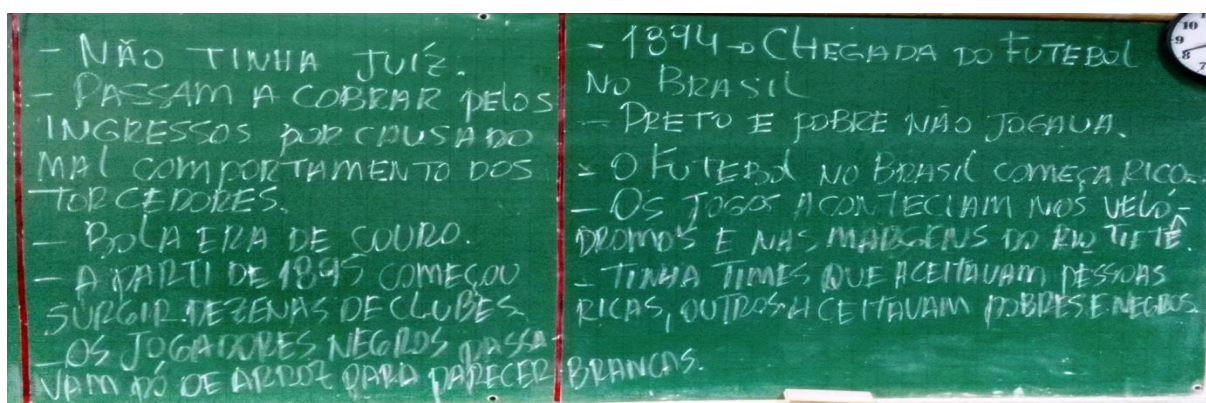 - NÃO TINHA JUÍZ.
- PASSAM A COBRAR PELOS
INGRESSOS POR CAUSA DO
MAL COMPORTAMENTO DOS
TORCEDORES.
- BOLA ERA DE COURO.
- A PARTI DE 1895 COMEÇOU
SURGIR DEZENAS DE CLUBES.
- OS JOGADORES NEGROS PASSA-
VAM PÓ DE ARROZ PARA PARECER BRANCAS.
- 1894 → CHEGADA DO FUTEBOL
NO BRASIL
- PRETO E POBRE NÃO JOGAVA.
- O FUTEBOL NO BRASIL COMEÇA RICO.
- OS JOGOS ACONTECIAM NOS VELÓ-
DROMOS E NAS MARGENS DO RIO TIETÊ.
- TINHA TIMES QUE ACEITAVAM PESSOAS
RICAS, OUTROS ACEITAVAM POBRES E NEGROS.
10
9
8
7